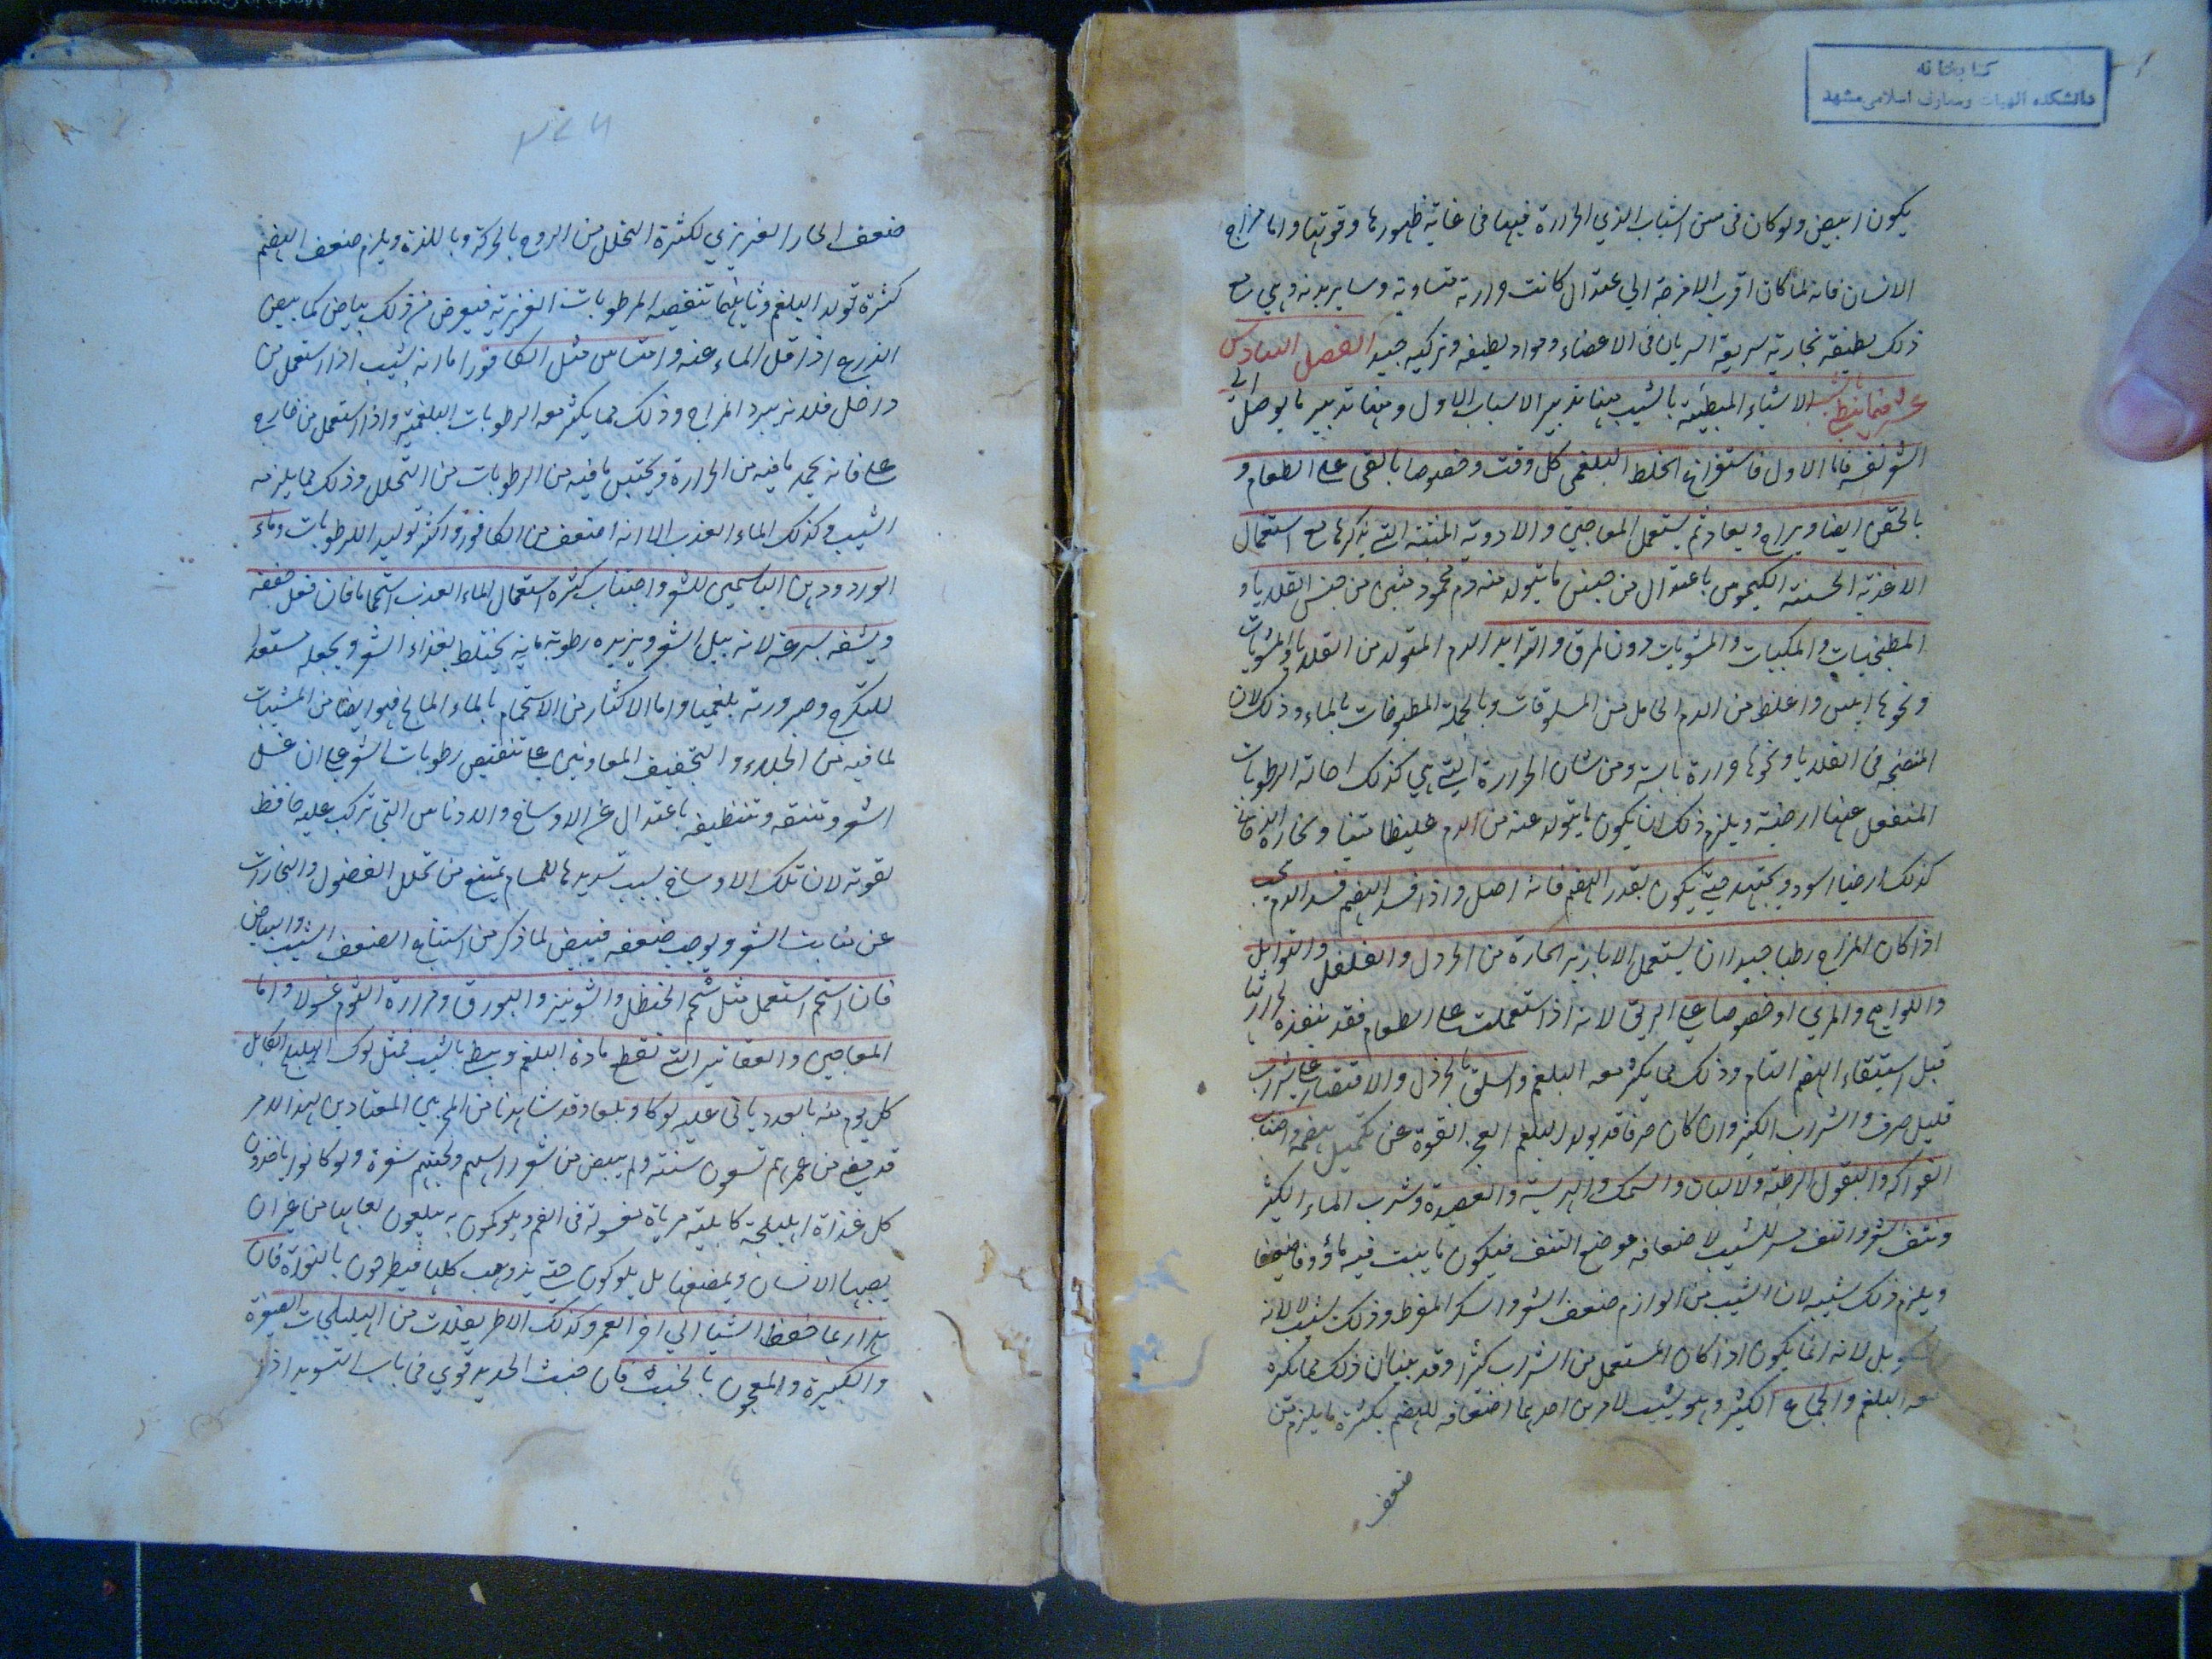 كتابخانه
دانشكده الهيات ومعارف اسلامى مشهد
يكون ابيض ولو كان فى سن الشباب الذي الحرارة فيها فى غاية ظهورها وقوتها واما مزاج
الانسان فانه لما كان اقرب الامزجة الي اعتدال كانت حرارته متساوية وساير بدنه وهي مع
ذلك لطيفة بخارية سريعة السريان فى الاعضاء ومواد لطيفه وتركيبه جيد الفصل السادس
عشر فيما يبطي بالشيب الاشياء المبطئة بالشيب منها تدبير الاسباب الاول ومنها تدبير ما يوصل الي
الشعر نفسه فاما الاول فاستفراغ الخلط البلغمى كل وقت وخصوصا بالقى على الطعام و
بالحقن ايضا ويراح ويعاد ثم يستعمل المعاجين والادوية المنبتة التي نذكرها مع استعمال
الاغذية الحسنة الكيموس باعتدال من جنس ما يتولد منه دم محمود متين من جنس القلايا و
المطنجيات والمكببات والمشويات دون المرق والثرايد الدم المتولد من القلايا والمشويات
ونحوها ايبس واغلظ من الدم الحاصل من المسلوقات وبالجملة المطبوخات بالماء وذلك لان
المنضجه فى القلايا ونحوها حرارة يابسة ومن شان الحرارة التي هي كذلك احالة الرطوبات
المنفعل عنها ارضية ويلزم ذلك ان يكون ما يتولد عنه من الدم غليظا متينا وبخاره الدخانى
كذلك ارضيا اسود ويجتهد حتى يكون بقدر الهضم فانه اصل واذا فسد الهضم فسد الدم يجب
اذا كان المزاج رطبا جيدا ان يستعمل الابازير الحارة من الخردل والفلفل والتوابل
والكواميخ والمري وخصوصا على الريق لانه اذا استعملت على الطعام فقد ينفذه لحرارتها
قبل استيفاء الهضم التام وذلك مما يكثر معه البلغم والسلق بالخردل والاقتصار على شراب
قليل صرف والشراب الكثير وان كان صرفا قد يولد البلغم لعجز القوة عن تكميل هضمه واجتناب
الفواكه والبقول الرطبة والالبان والسمك والهريسة والعصيدة وشرب الماء الكثير
ونتف الشعر والنتف مسرع للشيب لاضعافه موضع النتف فيكون ما ينبت فيه مؤوفا ضعيفا
ويلزم ذلك شيبه لان الشيب من لوازم ضعف الشعر والسكر المفرط وذلك ليس لانه
سكر بل لانه انما يكون اذا كان المستعمل من الشراب كثيرا وقد بينا ان ذلك مما يكثر
معه البلغم والجماع الكثير وهو يشيب لامرين احدهما اضعافه للهضم بكثرة ما يلزم من
ضعف
ضعف الحار الغريزي لكثرة التحلل من الروح بالحركة وباللذة ويلزم ضعف الهضم
كثرة تولد البلغم وثانيهما تنقيصه الرطوبات الغريزية فيعرض من ذلك بياض كما يبيض
الزرع اذا قل الماء عنه واحتباس مثل الكافور اما انه يشيب اذا استعمل من
داخل فلانه يبرد المزاج وذلك مما يكثر معه الرطوبات البلغمية واذا استعمل من خارج
على فانه يجمد ما فيه من الحرارة ويحتبس ما فيه من الرطوبات من التحلل وذلك مما يلزمه
الشيب وكذلك الماء العذب الا انه اضعف من الكافور واكثر توليد الرطوبات وماء
الورد ودهن الياسمين للشعر واجتناب كثرة استعمال الماء العذب استحماما فان فعل جففه
وينشفه بسرعة لانه يبل الشعر ويزيده رطوبة مائية يختلط بغذاء الشعر ويجعله مستعدا
للتكرج وصيرورته بلغميا واما الاكثار من الاستحمام بالماء المالح فهو ايضا من المشيبات
لما فيه من الجلاء والتجفيف المعاونين على تنقيص رطوبات الشعر على ان غسل
الشعر وتنقيته وتنظيفه باعتدال عن الاوساخ والادناس التى تركب عليه حافظ
لقوته لان تلك الاوساخ بسبب تسديدها للمسام يمنع من تحلل الفضول والبخارات
عن منابت الشعر ويوجب ضعفه فيبيض لما ذكر من استتباع الضعف الشيب والبياض
فان استحم استعمل مثل شحم الحنظل والشونيز والبورق ومرارة الثور غسولا واما
المعاجين والعقاقير التي تقطع مادة البلغم ويبطي بالشيب فمثل لوك الهليلج الكابلى
كل يوم منه بالعدد ياتى عليه لوكا وبلعا وقد شاهدنا من المجربين المعتادين لهذا الامر
قد مضى من عمرهم تسعون سنة ولم يبيض من شعور راسهم ولحيتهم شعرة ولو كانوا ياخذون
كل غداة اهليلجة كابلية مرباة مغسولة فى الفم ويلوكون به يبلعون لعابها من غير ان
يصيبها الاسنان ويمضغها بل يلوكون حتى يذوهب كلها فيطرحون بالنواة فان
هذا ربما حفظ الشباب الي اخر العمر وكذلك الاطريفلات من الهليلجات الصغيرة
والكبيرة والمعجون بالخبث فان خبث الحديد قوي فى باب التسويد اذا